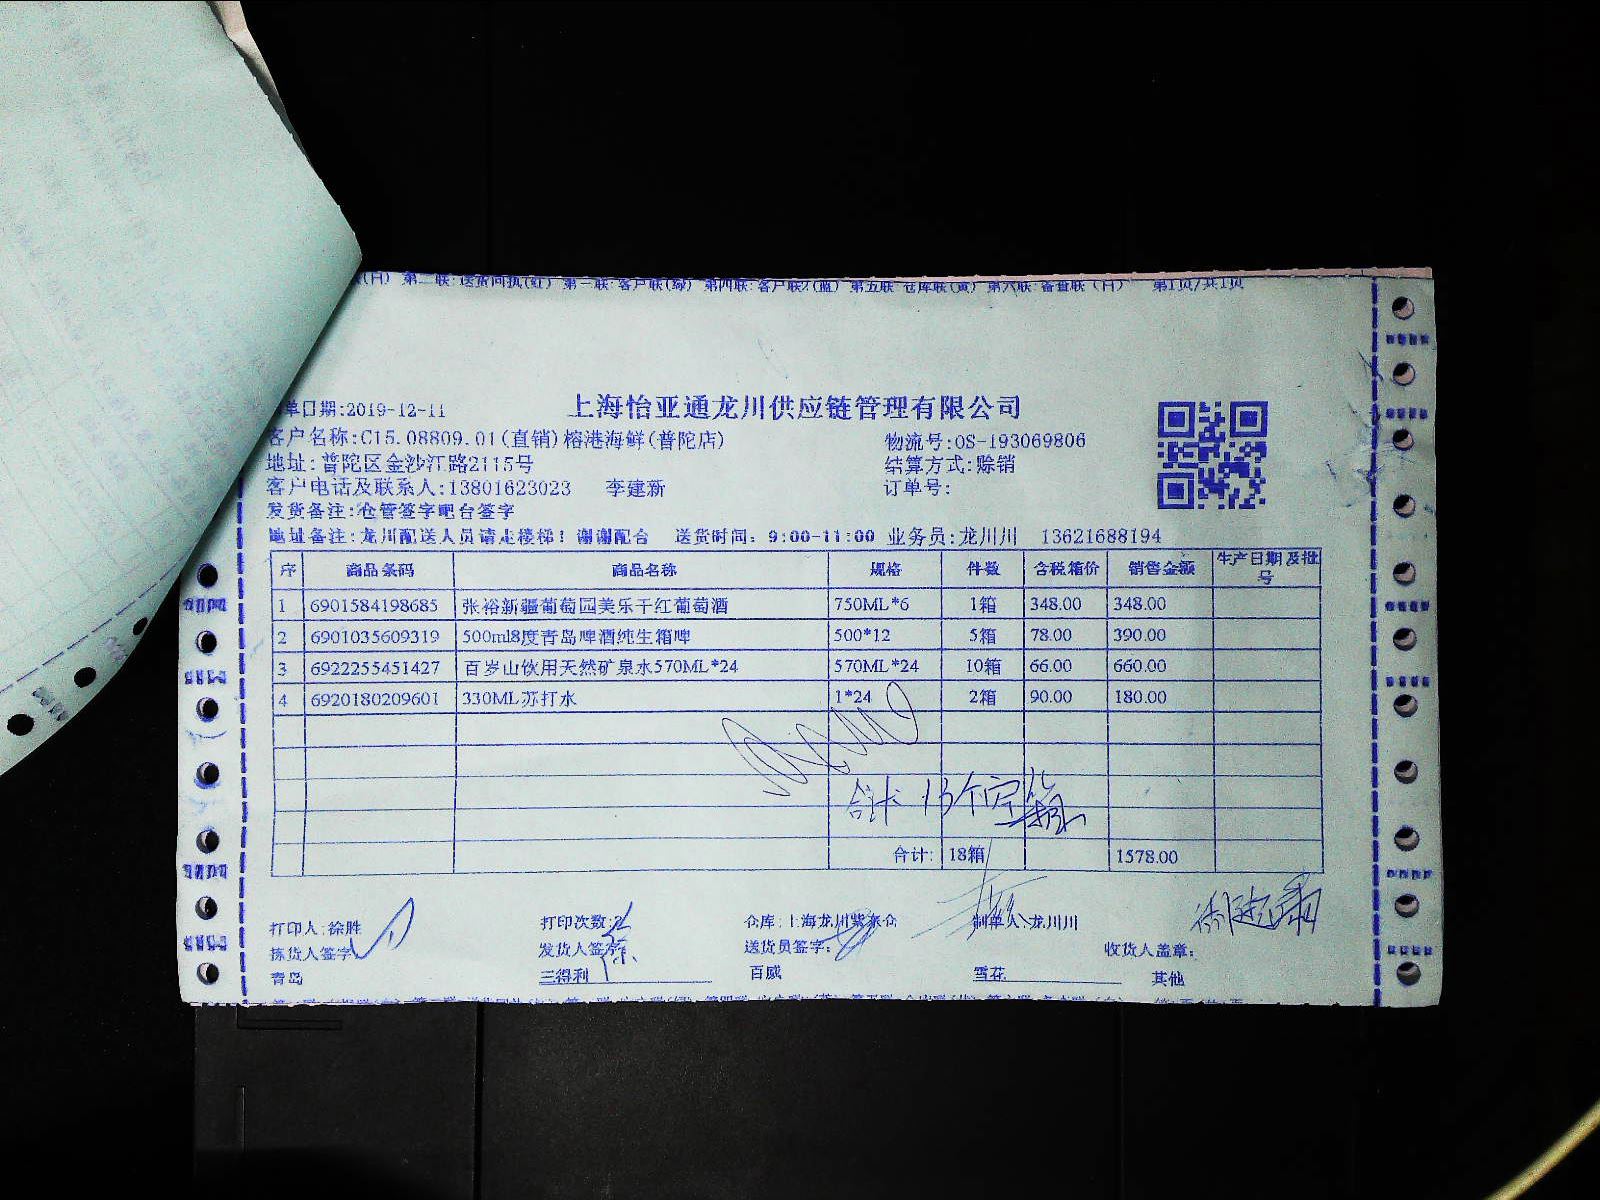 (白) 第二联:送货回执(红) 第三联:客户联(绿) 第四联:客户联2(蓝) 第五联 仓库联(黄) 第六联:备查联(白) 第1页/共1页
单日期:2019-12-11 上海怡亚通龙川供应链管理有限公司
客户名称:C15.08809.01(直销)榕港海鲜(普陀店) 物流号:OS-193069806
地址:普陀区金沙江路2115号 结算方式:赊销
客户电话及联系人:13801623023 李建新 订单号:
发货备注:仓管签字吧台签字
地址备注:龙川配送人员请走楼梯!谢谢配合 送货时间:9:00-11:00 业务员:龙川川 13621688194
序 商品条码 商品名称 规格 件数 含税箱价 销售金额 生产日期及批号
1 6901584198685 张裕新疆葡萄园美乐干红葡萄酒 750ML*6 1箱 348.00 348.00
2 6901035609319 500ml8度青岛啤酒纯生箱啤 500*12 5箱 78.00 390.00
3 6922255451427 百岁山饮用天然矿泉水570ML*24 570ML*24 10箱 66.00 660.00
4 6920180209601 330ML苏打水 1*24 2箱 90.00 180.00
合计 13个空箱
合计: 18箱 1578.00
打印人:徐胜 打印次数: 仓库:上海龙川紫东仓 制单人:龙川川
拣货人签字 发货人签字 送货员签字: 收货人盖章:
青岛 三得利 百威 雪花 其他